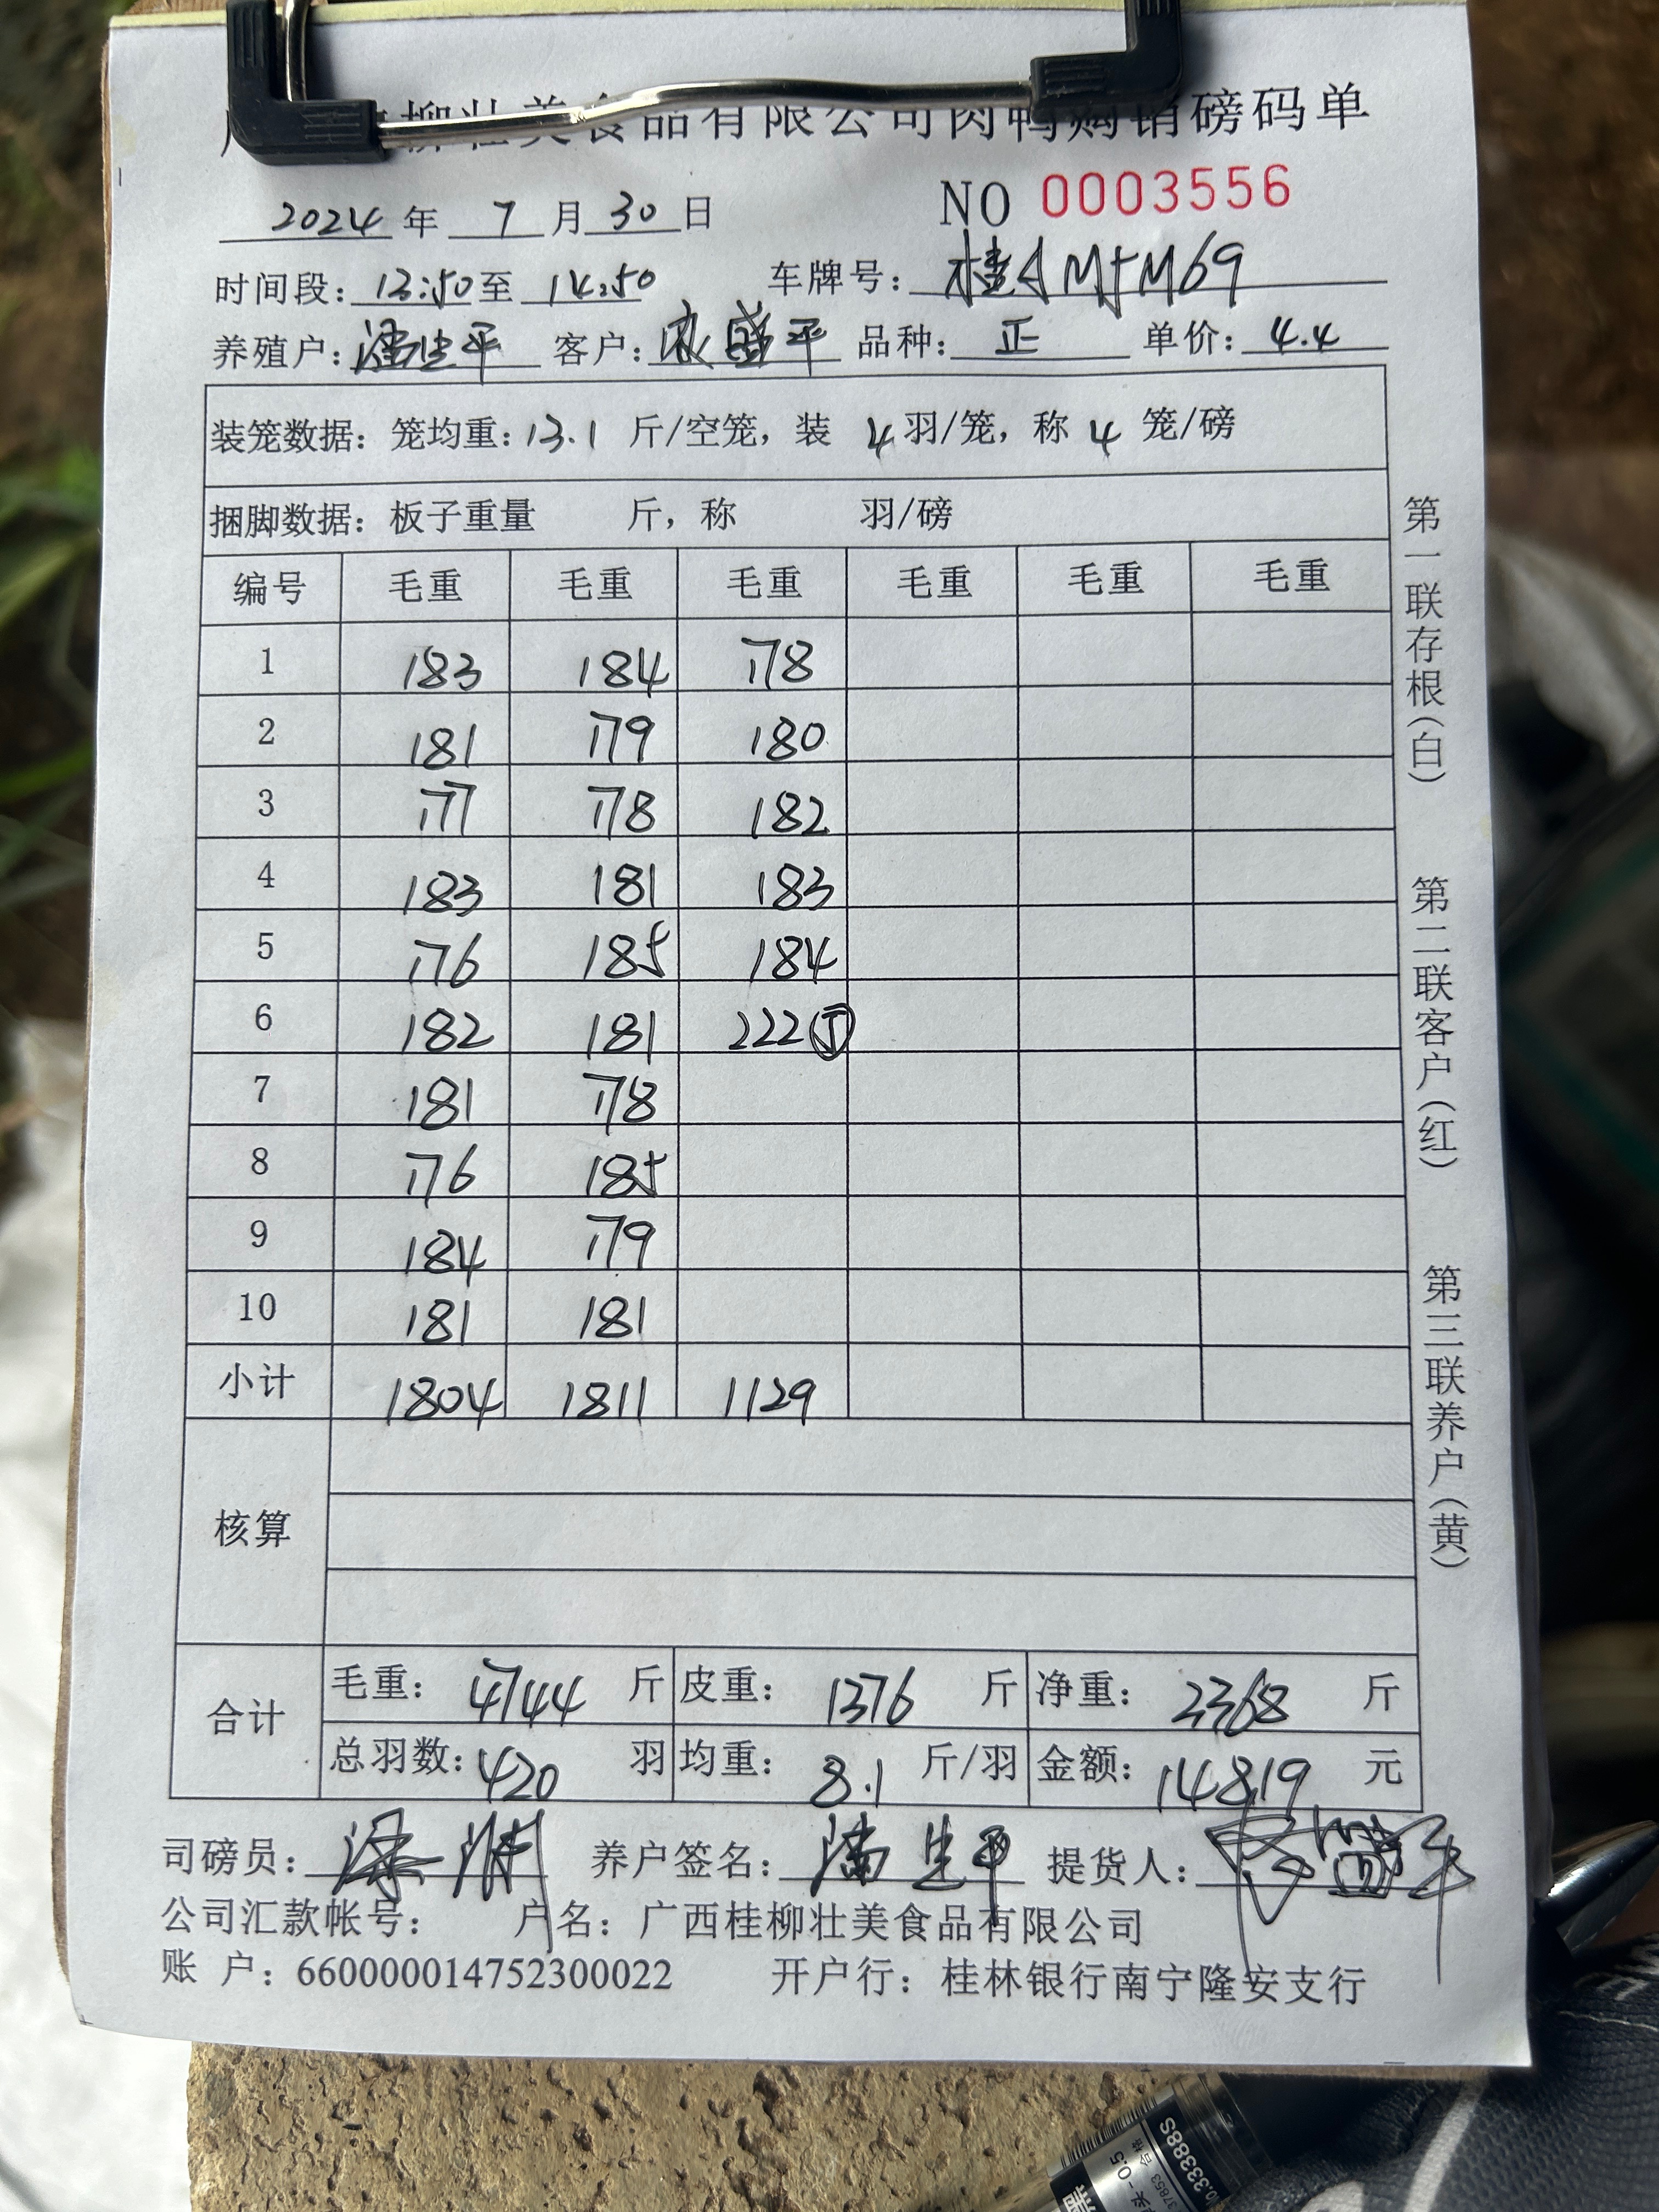 柳壮美食品有限公司肉鸭购销磅码单
2024年 7月30日 NO 0003556
时间段：13:50至 14:50 车牌号：桂AM5M69
养殖户：潘生平 客户：盛平 品种：正 单价：4.4
装笼数据：笼均重：13.1 斤/空笼，装 4 羽/笼，称 4 笼/磅
捆脚数据：板子重量 斤，称 羽/磅
编号 毛重 毛重 毛重 毛重 毛重 毛重
1 183 184 178
2 181 179 180
3 177 178 182
4 183 181 183
5 176 185 184
6 182 181 222⑤
7 181 178
8 176 185
9 184 179
10 181 181
小计 1804 1811 1129
核算
合计
毛重：4744 斤 皮重：1376 斤 净重：2368 斤
总羽数：420 羽 均重：8.1 斤/羽 金额：14819 元
司磅员： 养户签名：潘生平 提货人：
公司汇款帐号： 户名：广西桂柳壮美食品有限公司
账 户：660000014752300022 开户行：桂林银行南宁隆安支行
第一联存根（白） 第二联客户（红） 第三联养户（黄）